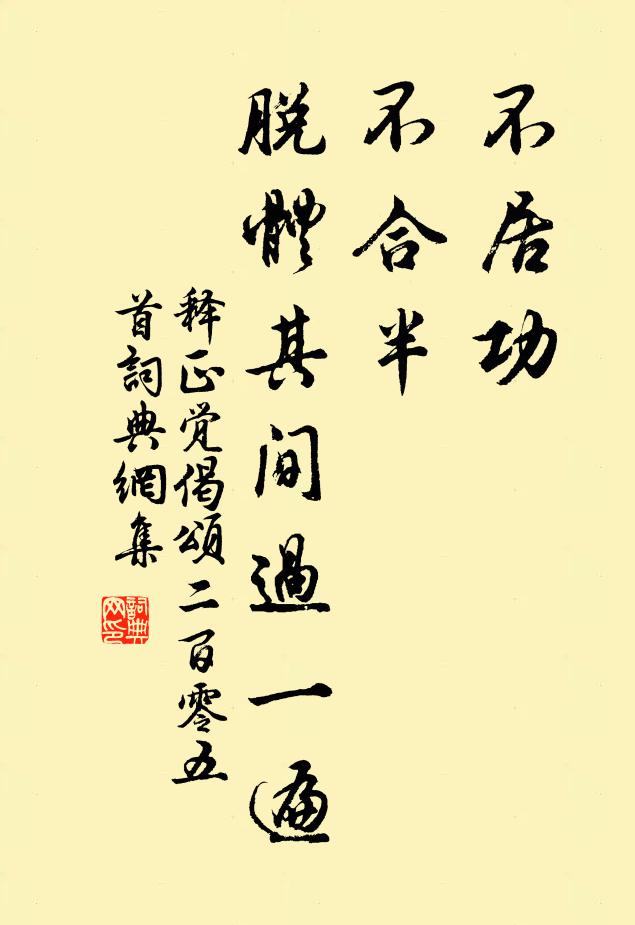 不居功
不合半
脫體其間過一遍
释正觉偈頌二百零五
首詞典網集
詞典
网印